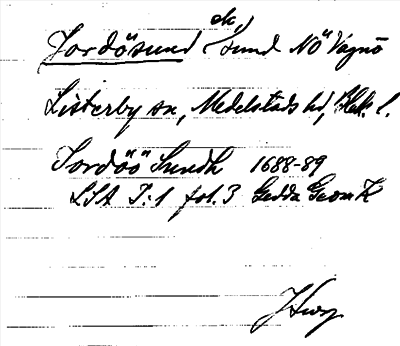 Jordösund ek, (Sund NÖ Vagnö
Listerby sn, Medelstads hd, Blek. l.
Jordöö Sundh 1688-89
LSA I:1 fol. 3 Gedda Geom K